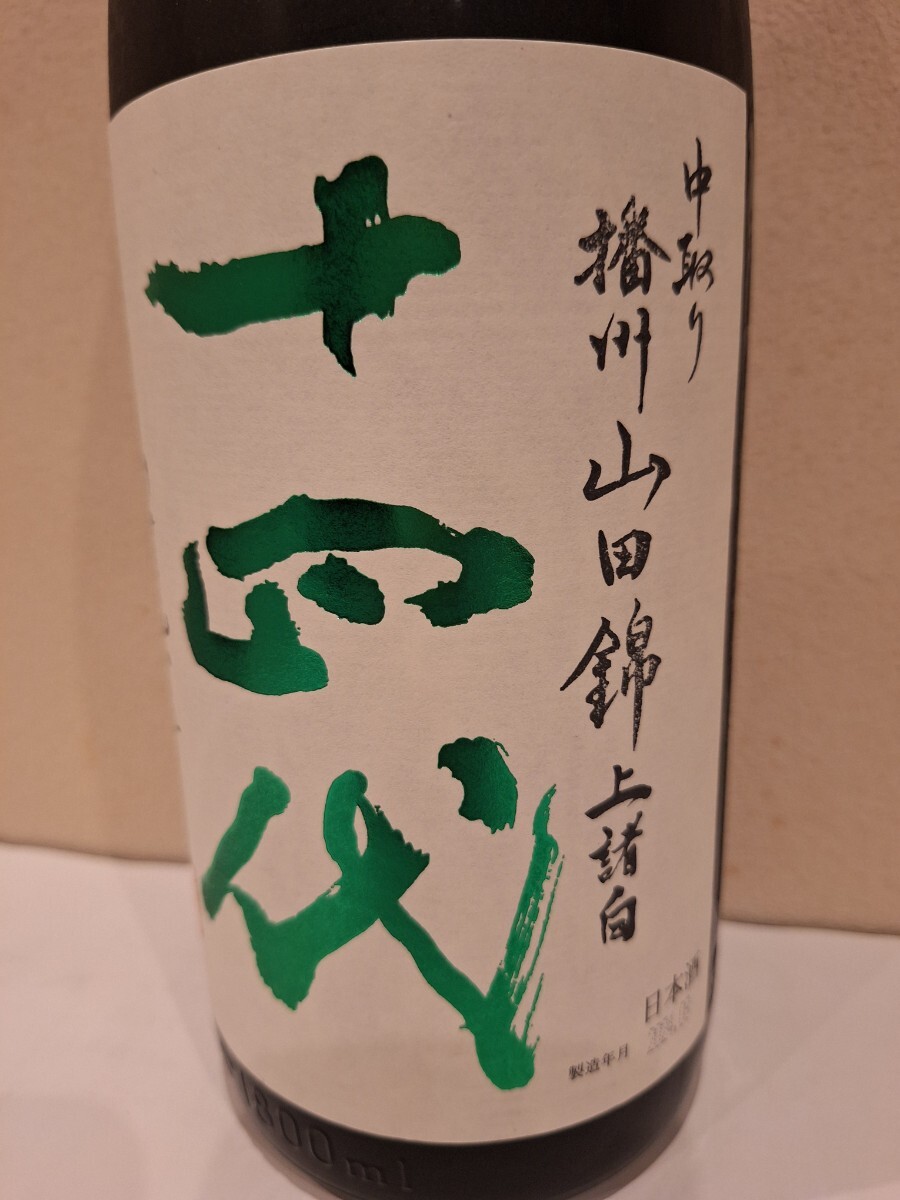 中取り
播州山田錦上諸白
十四代
日本酒
製造年月 2024.09
1800ml